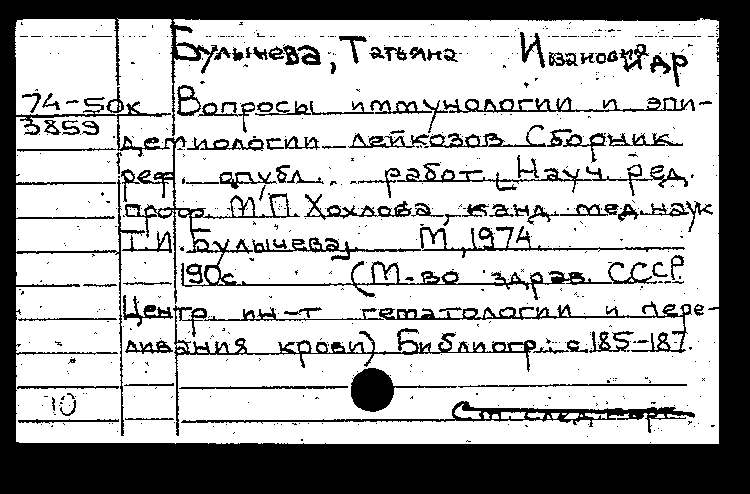 Булычева, Татьяна Ивановна и др
74-50к Вопросы иммунологии и эпи-
3859 демиологии лейкозов Сборник
реф. опубл. работ. Науч. ред.
проф. М.П. Хохлова, канд. мед. наук
Т.И. Булычева. М, 1974.
190с. (М-во здрав. СССР
Центр. ин-т гематологии и пере-
ливания крови) Библиогр.: с. 185-187.
10
См. след. карт.